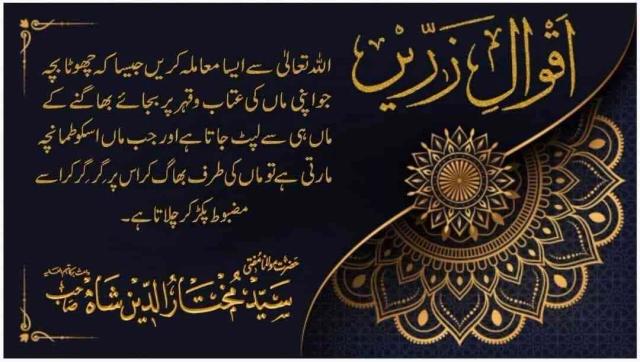 اَقوالِ زرّیں
اللہ تعالیٰ سے ایسا معاملہ کریں جیسا کہ چھوٹا بچہ
جو اپنی ماں کی عتاب و قہر پر بجائے بھاگنے کے
ماں ہی سے لپٹ جاتا ہے اور جب ماں اسکو طمانچہ
مارتی ہے تو ماں کی طرف بھاگ کر اس پر گر گر کر اسے
مضبوط پکڑ کر چلاتا ہے۔
حضرت مولانا مفتی
سید مختار الدین شاہ صاحب
دامت برکاتہم العالیہ